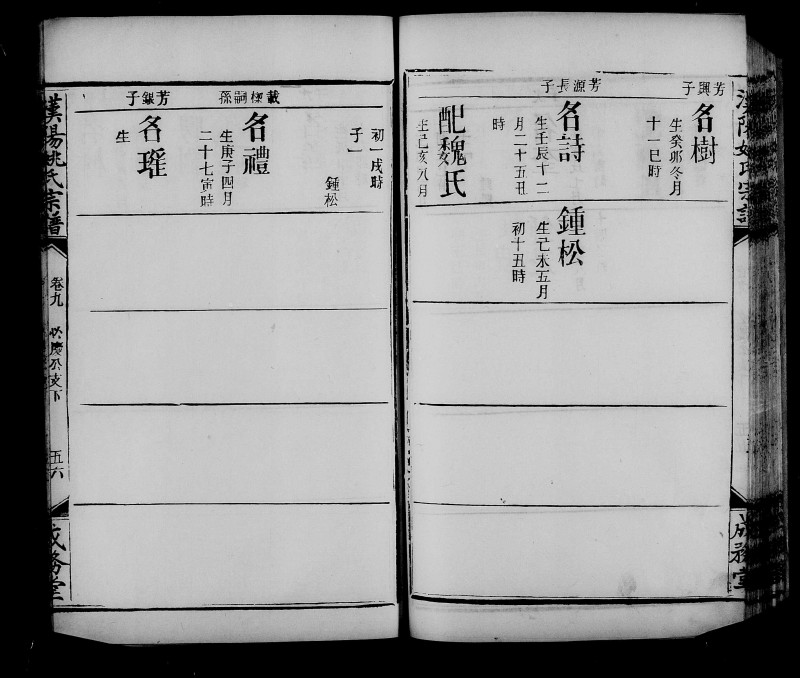 漢陽姚氏宗譜
成務堂
芳興子
名樹
生癸卯冬月
十一巳時
芳源長子
名詩
生壬辰十二
月二十五丑
時
配魏氏
生己亥八月
鍾松
生己未五月
初十丑時
初一戌時
子一
鍾松
載極嗣孫
名禮
生庚子四月
二十七寅時
芳銀子
名璀
生
漢陽姚氏宗譜
卷九
必慶公支下
五六
成務堂